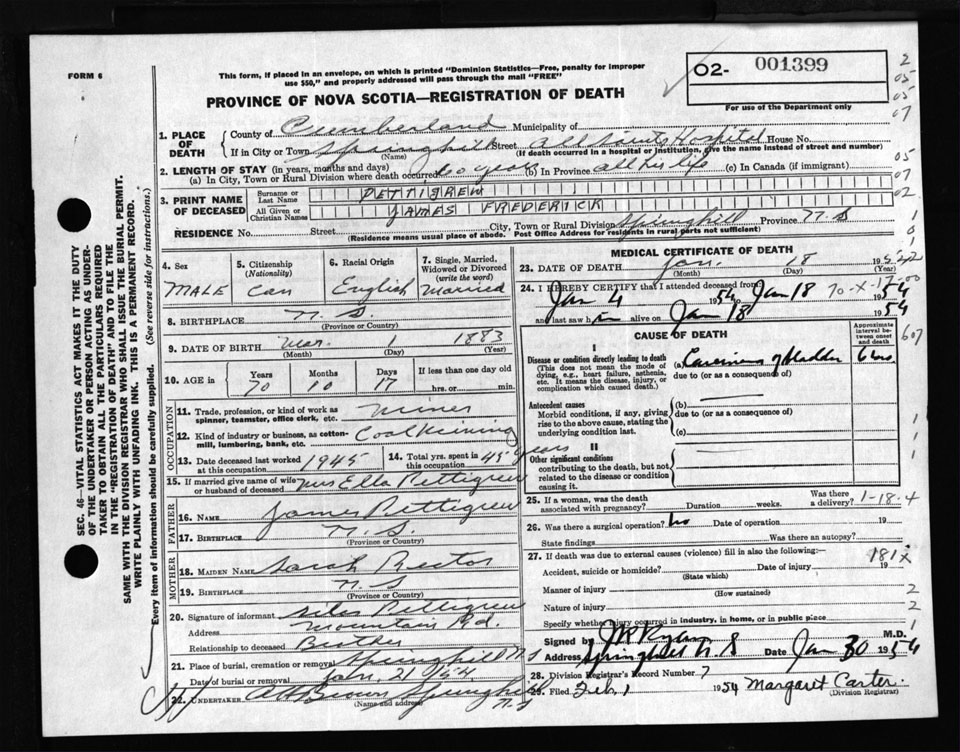 FORM 6
This form, if placed in an envelope, on which is printed "Dominion Statistics—Free, penalty for improper
use $50," and properly addressed will pass through the mail "FREE"
PROVINCE OF NOVA SCOTIA—REGISTRATION OF DEATH
O2- 001399
For use of the Department only
2
05
05
07
05
07
02
1. PLACE OF DEATH
County of Cumberland Municipality of
If in City or Town Springhill Street All Saints Hospital House No.
(Name) (If death occurred in a hospital or institution, give the name instead of street and number)
2. LENGTH OF STAY (in years, months and days)
(a) In City, Town or Rural Division where death occurred 60 years (b) In Province all his life (c) In Canada (if immigrant)
3. PRINT NAME OF DECEASED
Surname or Last Name PETTIGREW
All Given or Christian Names JAMES FREDERICK
RESIDENCE No. Street City, Town or Rural Division Springhill Province N.S
(Residence means usual place of abode. Post Office Address for residents in rural parts not sufficient)
SEC. 46—VITAL STATISTICS ACT MAKES IT THE DUTY
OF THE UNDERTAKER OR PERSON ACTING AS UNDER-
TAKER TO OBTAIN ALL THE PARTICULARS REQUIRED
IN THE "REGISTRATION OF DEATH" AND TO FILE THE
SAME WITH THE DIVISION REGISTRAR WHO SHALL ISSUE THE BURIAL PERMIT.
WRITE PLAINLY WITH UNFADING INK. THIS IS A PERMANENT RECORD.
Every item of information should be carefully supplied. (See reverse side for instructions.)
4. Sex MALE
5. Citizenship (Nationality) Can
6. Racial Origin English
7. Single, Married, Widowed or Divorced (write the word) Married
8. BIRTHPLACE N.S.
(Province or Country)
9. DATE OF BIRTH Mar. 1 1883
(Month) (Day) (Year)
10. AGE in Years Months Days If less than one day
70 10 17 hrs. or min.
OCCUPATION
11. Trade, profession, or kind of work as
spinner, teamster, office clerk, etc. Miner
12. Kind of industry or business, as cotton-
mill, lumbering, bank, etc. Coal Mining
13. Date deceased last worked
at this occupation 1945
14. Total yrs. spent in
this occupation 45 years
15. If married give name of wife
or husband of deceased Mrs Ella Pettigrew
FATHER
16. Name James Pettigrew
17. Birthplace N.S.
(Province or Country)
MOTHER
18. MAIDEN NAME Sarah Rector
19. BIRTHPLACE N.S
(Province or Country)
20. Signature of informant Pettigrew
Address Mountain Rd.
Relationship to deceased Brother
21. Place of burial, cremation or removal Springhill N.S
Date of burial or removal Jan. 21/54
22. UNDERTAKER A H Brown Springhill
(Name and address) N.S
MEDICAL CERTIFICATE OF DEATH
23. DATE OF DEATH Jan. 18 195
(Month) (Day) (Year)
24. I HEREBY CERTIFY that I attended deceased from
Jan 4 1954 to Jan 18 1954
and last saw him alive on Jan 18 1954
CAUSE OF DEATH
Approximate interval between onset and death
607
I
Disease or condition directly leading to death
(This does not mean the mode of
dying, e.g., heart failure, asthenia,
etc. It means the disease, injury, or
complication which caused death.)
(a) Carcinoma of bladder 6 mos
due to (or as a consequence of)
Antecedent causes
Morbid conditions, if any, giving
rise to the above cause, stating the
underlying condition last.
(b)
due to (or as a consequence of)
(c)
II
Other significant conditions
contributing to the death, but not
related to the disease or condition
causing it
25. If a woman, was the death
associated with pregnancy? Duration weeks. Was there
a delivery? 1-18-4
26. Was there a surgical operation? No Date of operation 19
State findings Was there an autopsy?
27. If death was due to external causes (violence) fill in also the following:— 181X
Accident, suicide or homicide? Date of injury 19
(State which)
Manner of injury 2
(How sustained)
Nature of injury 2
Specify whether injury occurred in industry, in home, or in public place 1
Signed by J R Ryan M.D.
Address Springhill N.S Date Jan 30 1954
28. Division Registrar's Record Number 7
29. Filed Feb. 1 1954 Margaret Carter.
(Division Registrar)